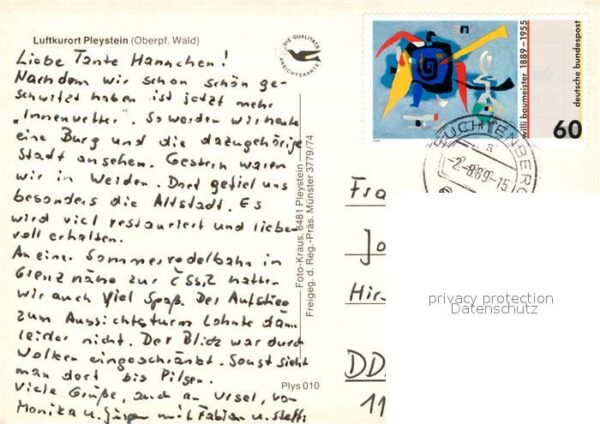 Luftkurort Pleystein (Oberpf. Wald)
DIE QUALITÄTS
ANSICHTSKARTE
Liebe Tante Hannchen!
Nachdem wir schon schön ge-
schwitzt haben ist jetzt mehr
"Innenwetter". So werden wir heute
eine Burg und die dazugehörige
Stadt ansehen. Gestern waren
wir in Weiden. Dort gefiel uns
besonders die Altstadt. Es
wird viel restauriert und liebe-
voll erhalten.
An einer Sommerrodelbahn in
Grenznähe zur ČSSR hatten
wir auch viel Spaß. Der Aufstieg
zum Aussichtsturm lohnte dann
leider nicht. Der Blick war durch
Wolken eingeschränkt. Sonst sieht
man dort bis Pilsen.
Viele Grüße, auch an Ursel, von
Monika u. Jürgen mit Fabian u. Steffi
Foto-Kraus, 8481 Pleystein
Freigeg. d. Reg.-Präs. Münster 3779/74
Plys 010
willi baumeister 1889-1955
deutsche bundespost
60
LEUCHTENBERG
-2.-8.89-15
Fra
Jo
Hir
DD
11
privacy protection
Datenschutz